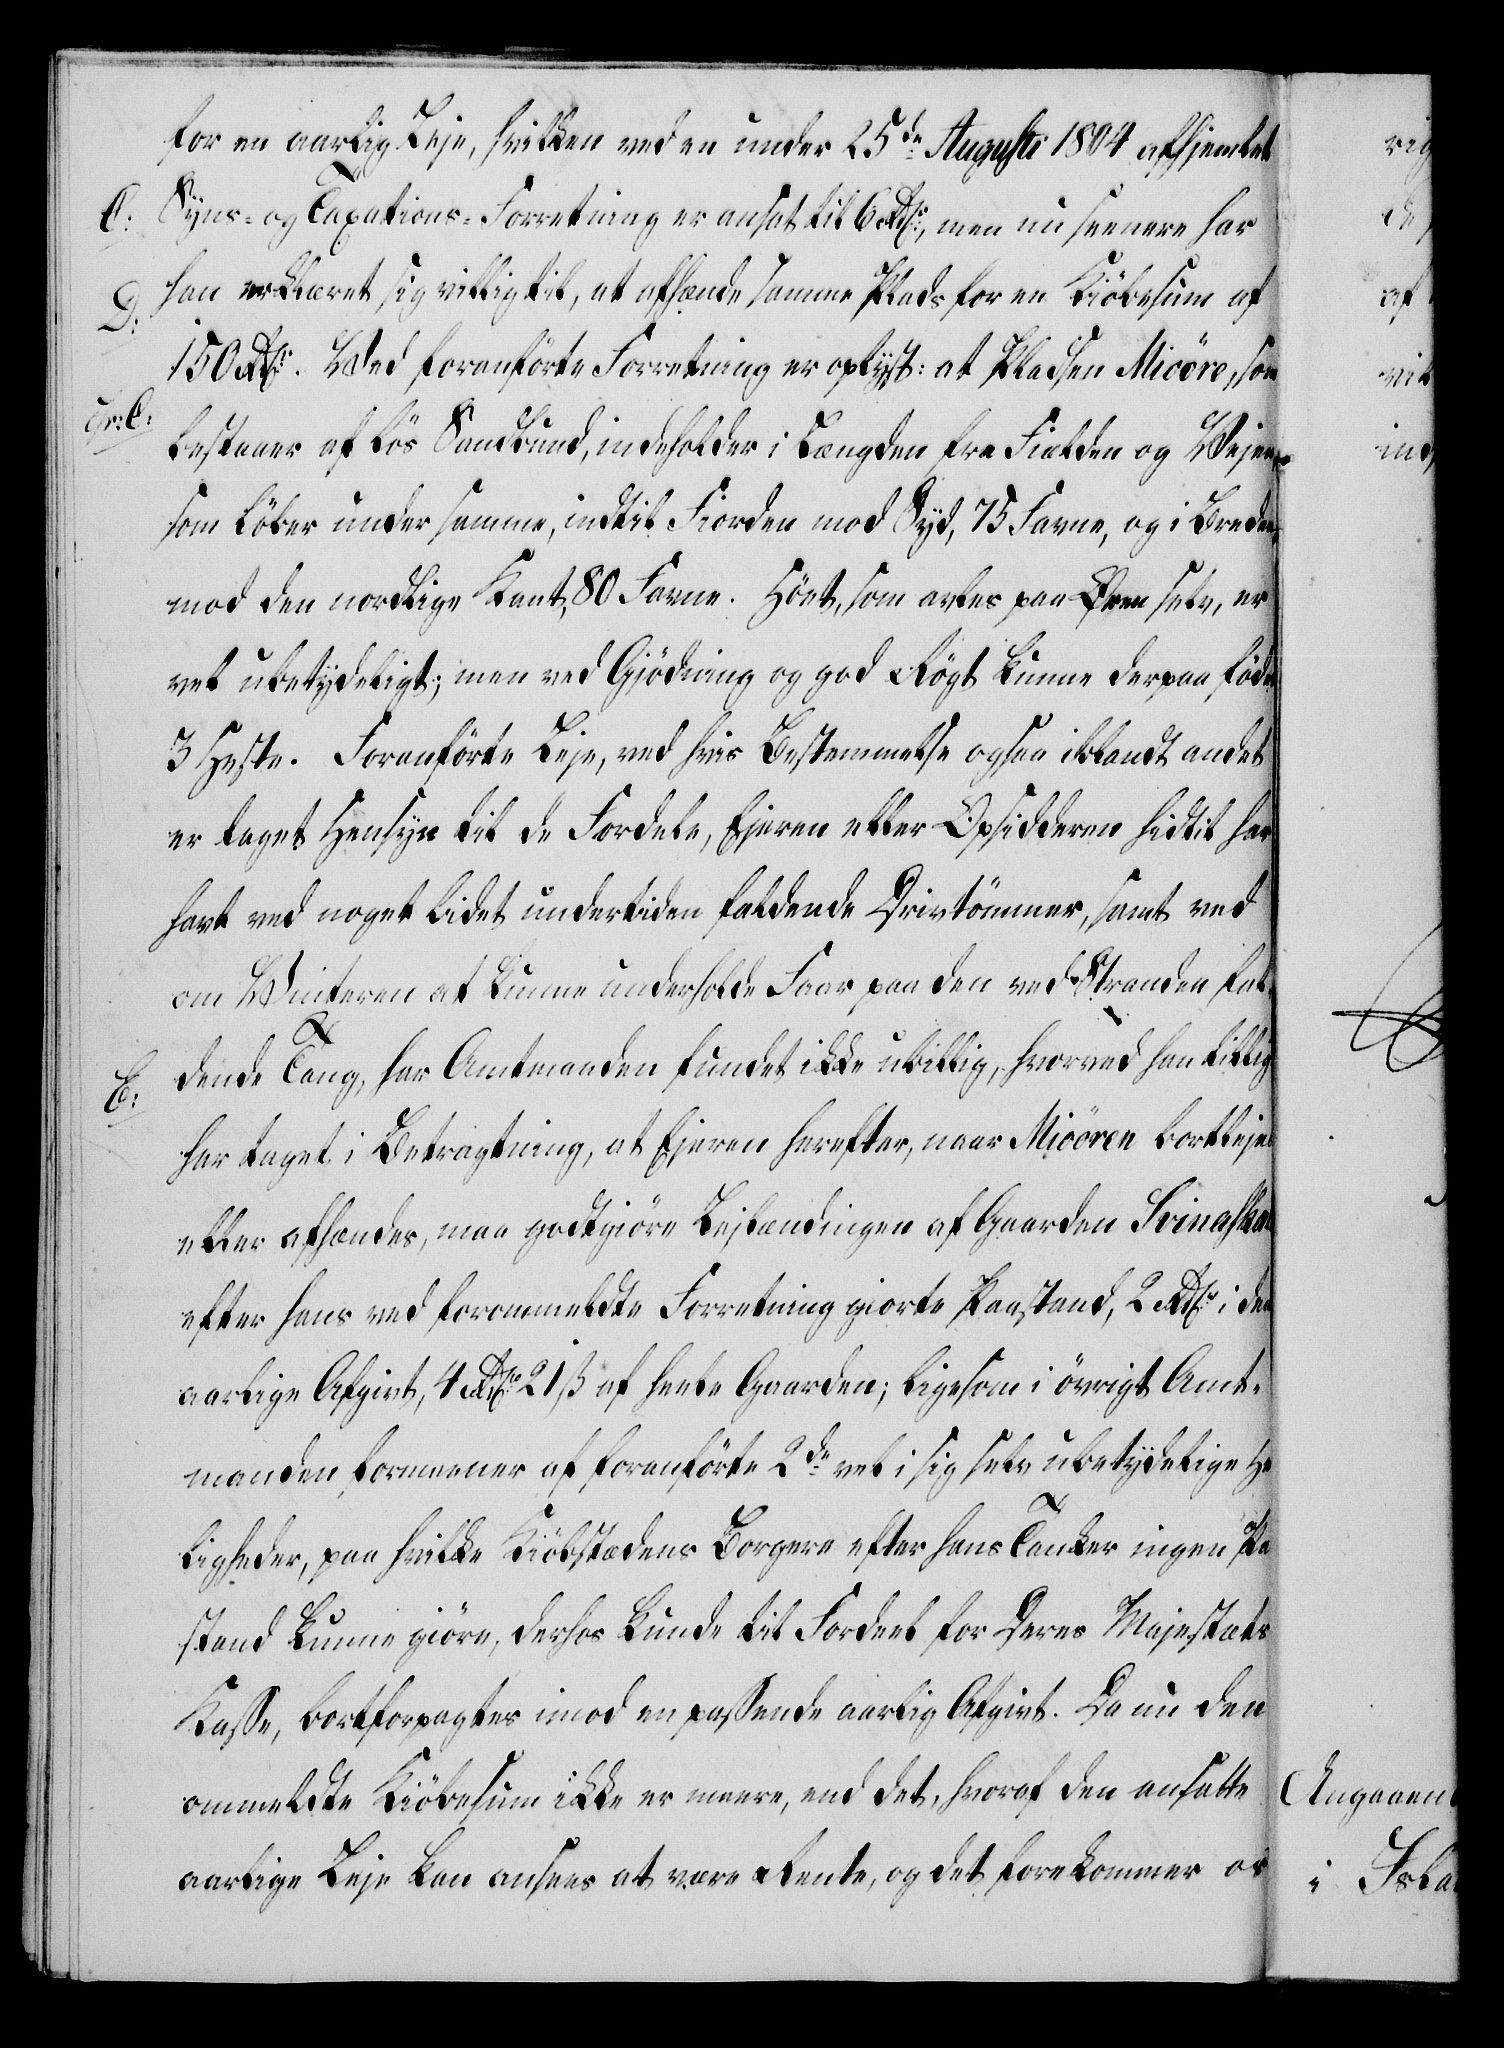 for en aarlig Leje, hvilken ved en under 25de Augusti 1804 afhjemlet
C. Syns- og Taxations-Forretning er ansat til 6 Rdlr., men nu seenere har
D. han erklæret sig villig til, at afhænde samme Plads for en Kiöbesum af
150 Rdlr. Ved foranförte Forretning er oplyst: at Pladsen Mioöre, som
cfr: C. bestaaer af lös Sandbund, indeholder i Længden fra Fielden og Vejen
som löber under samme, indtil Fiorden mod Syd, 75 Favne, og i Breden,
mod den nordlige Kant, 80 Favne. Höet, som avles paa Ören selv, er
vel ubetydeligt; men ved Gjödning og god Rögt kunne derpaa födes
3 Heste. Foranförte Leje, ved hvis Bestemmelse ogsaa iblandt andet
er taget Hensyn til de Fordele, Ejeren eller Opsidderen hidtil har
havt ved noget lidet undertiden faldende Drivtömmer, samt ved
om Vinteren at kunne underholde Faar paa den ved Stranden fal-
E: dende Tang, har Amtmanden fundet ikke ubillig, hvorved han tillige
har taget i Betragtning, at Ejeren herefter, naar Mioören bortlejes
eller afhændes, maa godtgiöre Lejlændingen af Gaarden Svinaskal
efter hans ved forommeldte Forretning giorte Paastand, 2 Rdlr. i den
aarlige Afgivt, 4 Rdlr. 21 ß af heele Gaarden; ligesom i övrigt Amt-
manden formeener af foranförte 2de vel i sig selv ubetydelige He
ligheder, paa hvilke Kiöbstædens Borgere efter hans Tanker ingen Pa
stand kunne giöre, derhos kunde til Fordeel for Deres Majestæts
Kasse, bortforpagtes imod en passende aarlig Afgivt. Da nu den
ommeldte Kiöbesum ikke er meere, end det, hvoraf den ansatte
aarlige Leje kan ansees at være Rente, og det forekommer os
rig
de
af
vil
ind
Angaaen
i Isla